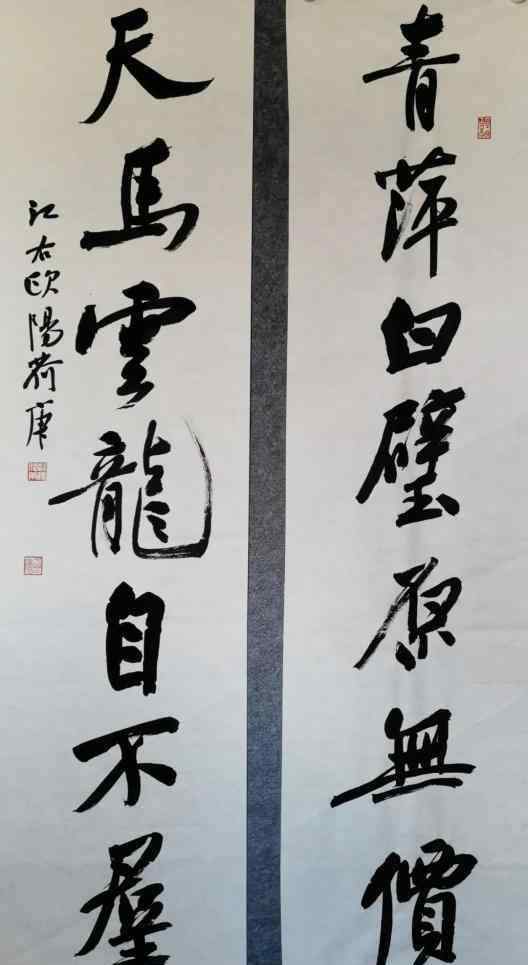 青萍白璧原無價
天馬雲龍自不羣
江右歐陽荷庚